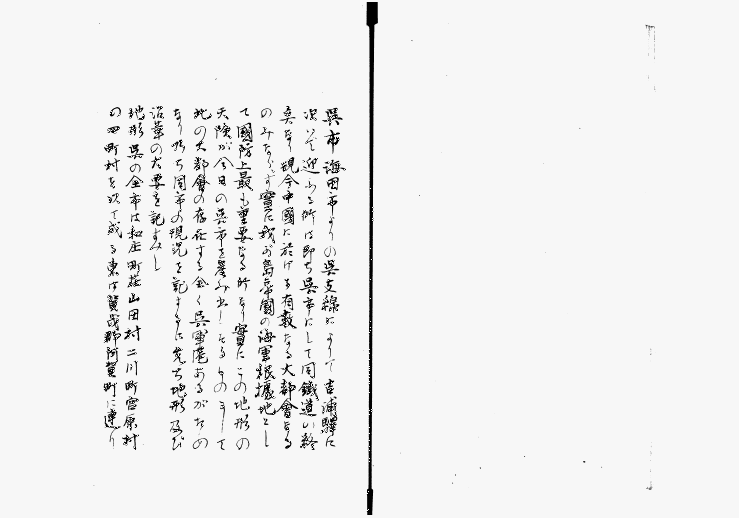 呉市 海田市よりの呉支線によりて吉浦驛に
次いで迎ふる所は即ち呉市にして同鐵道の終
奌なり現今中國に於ける有数なる大都會なる
のみならず實に我が島帝國の海軍根據地とし
て國防上最も重要なる所なり實にこの地形の
天險が今日の呉市を産み出したるものにして
此の大都會の存在する全く呉軍港あるがための
なり 即ち同市の現況を記するに先ち地形及び
沿革の大要を記すべし
地形 呉の全市は和庄町荘山田村二川町宮原村
の四町村を以て成る東は賀茂郡阿賀町に連り